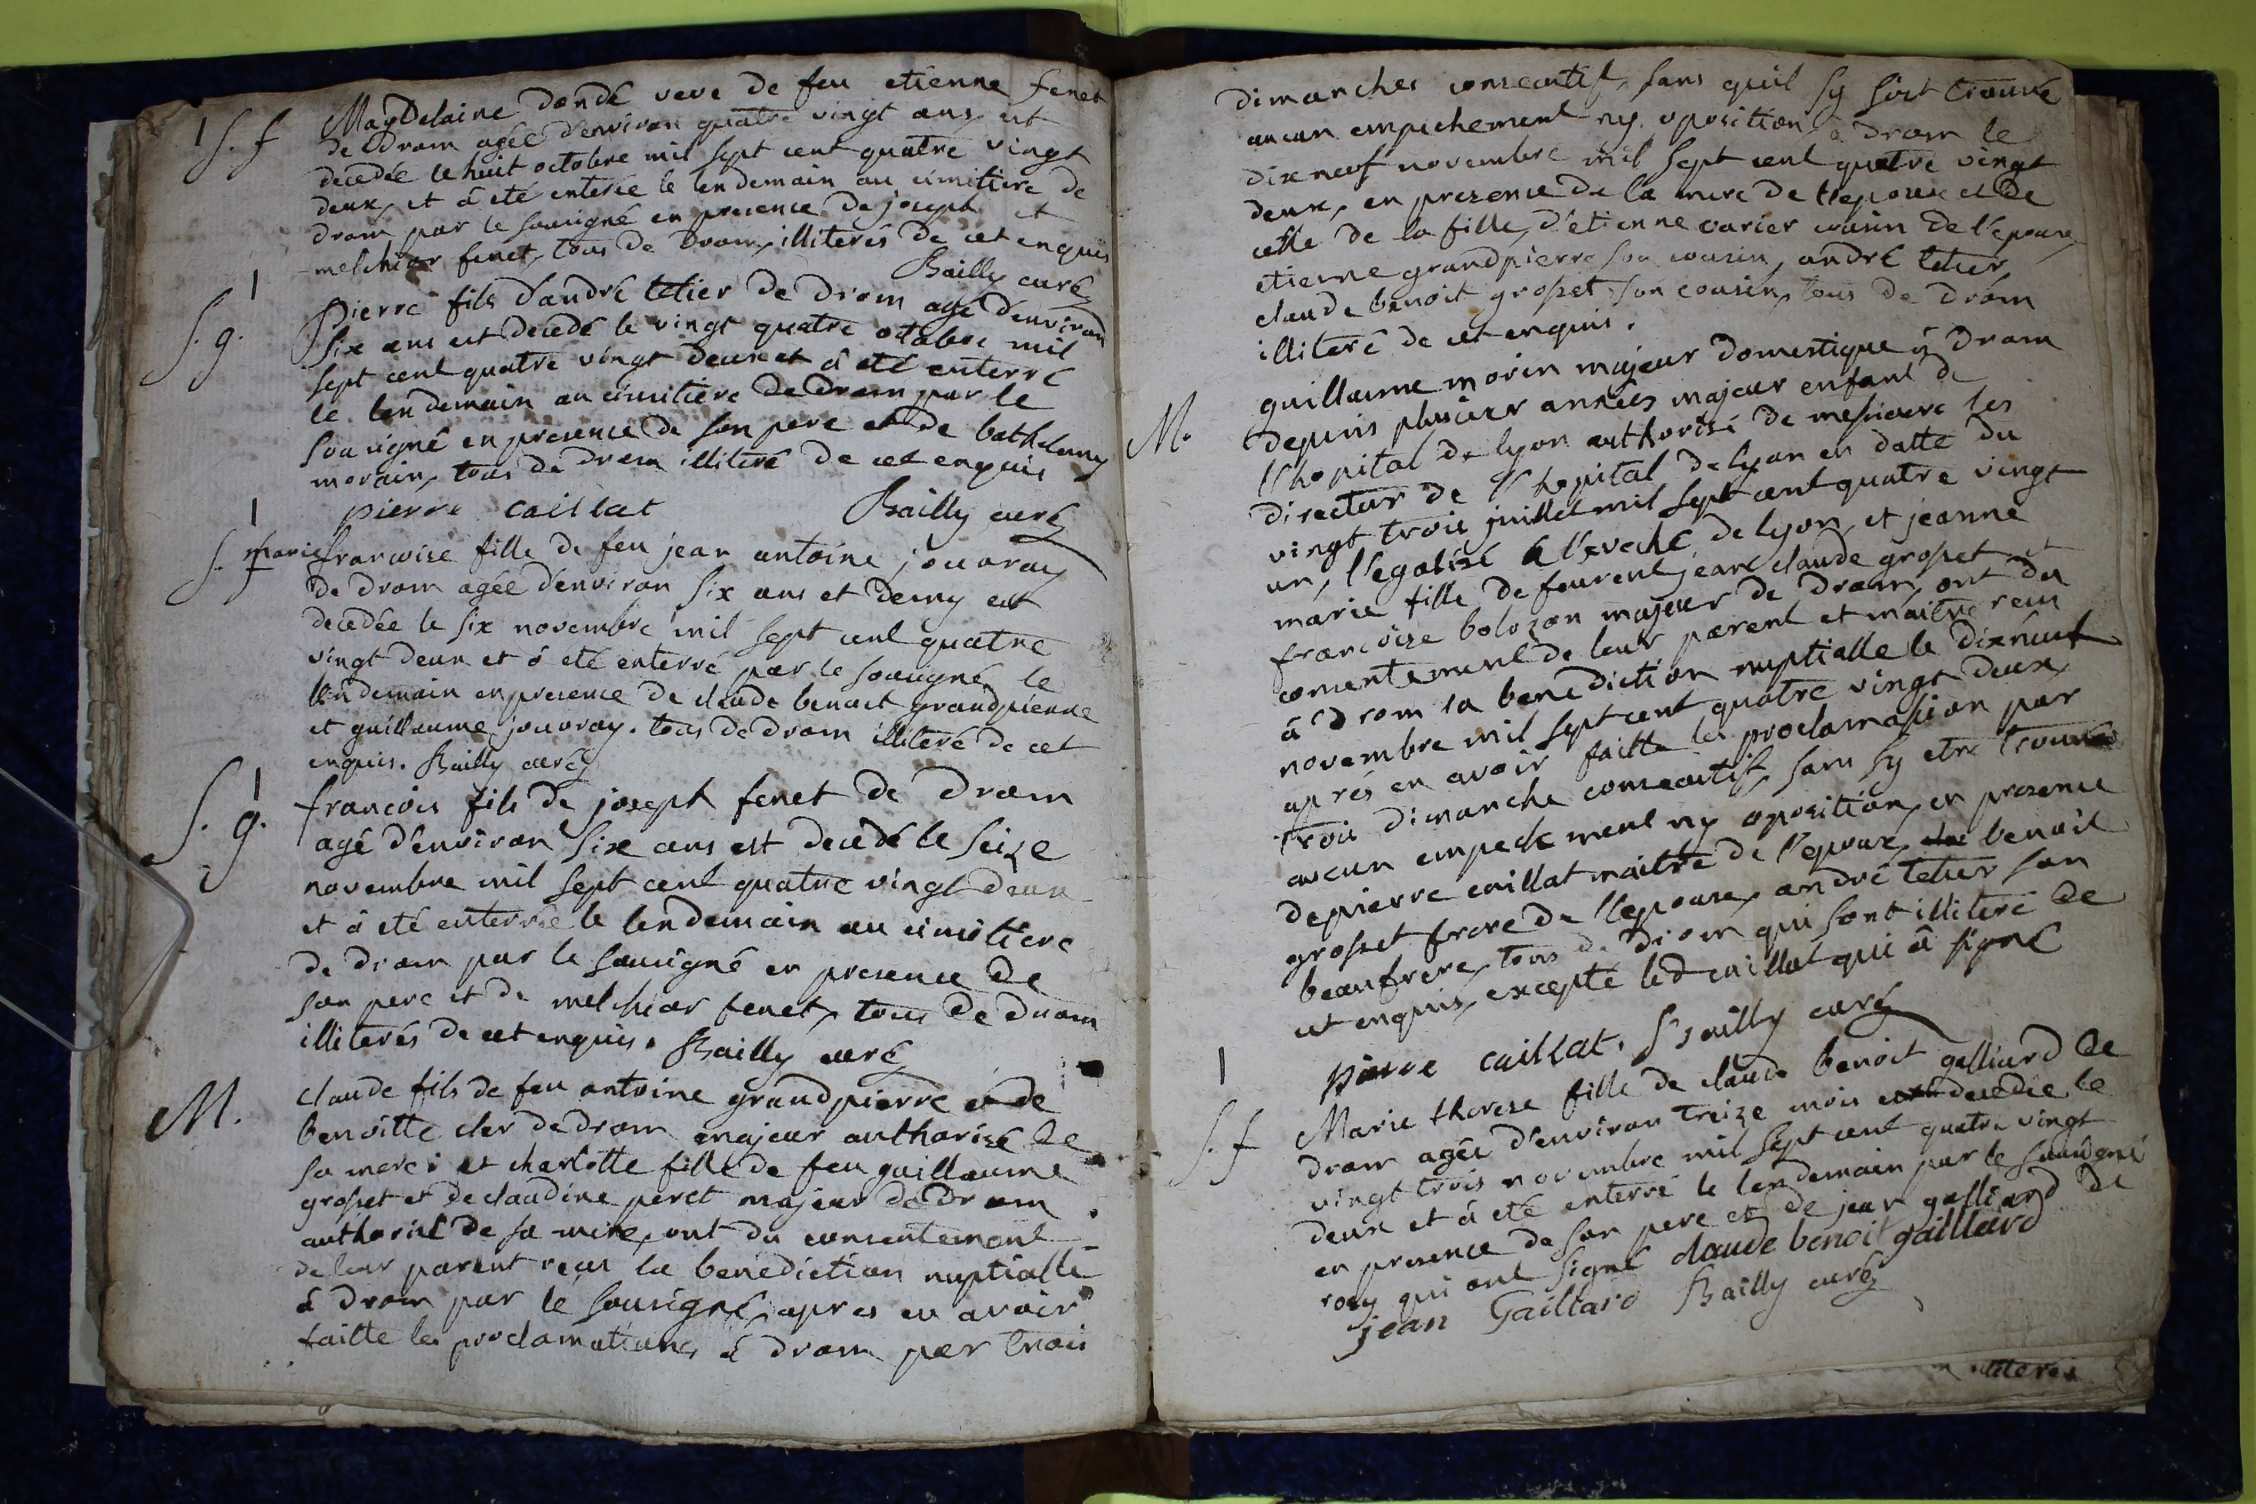 1
S. f
Magdelaine dondé veve de feu etienne fenet
de drom agée d'environ quatre vingt ans est
décedée le huit octobre mil sept cent quatre vingt
deux, et à eté enterée le lendemain au cimitiere de
drom par le sousigné en presence de joseph et
melchior fenet, tous de drom, illiterés de cet enquis
Bailly curé
1
S. g.
pierre fils d'andré tetier de drom agé d'environ
six ans est decedé le vingt quatre octobre mil
sept cent quatre vingt deux et à eté enterré
le lendemain au cimitiere de drom par le
sousigné en presence de son pere et de bathelemy
morain, tous de drom illiteré de cet enquis
pierre caillat Bailly curé
1
S. f
marie francoise fille de feu jean antoine jouvray
de drom agée d'environ six ans et demy est
decedée le six novembre mil sept cent quatre
vingt deux et à eté enterré par le sousigné le
lendemain en presence de claude benoit grandpierre
et guillaume jouvray. tous de drom illiteré de cet
enquis. Bailly curé
1
S. g.
francois fils de joseph fenet de drom
agé d'environ six ans est decedé le seize
novembre mil sept cent quatre vingt deux
et à eté enterrée le lendemain au cimitiere
de drom par le sousigné en presence de
son pere et de melchior fenet, tous de drom
illiterés de cet enquis. Bailly curé
M.
claude fils de feu antoine grandpierre et de
benoitte cler de drom majeur authorizé de
sa mere; et charlotte fille de feu guillaume
grosset et de claudine peret majeur de drom
authorisé de sa mere, ont du consentement
de leur parent recus la benediction nuptialle
à drom par le sousigné, apres en avoir
faitte les proclamations à drom par trois
dimanches consecutif, sans qu'il sy soit trouvé
aucun empechement ny oposition à drom le
dix neuf novembre mil sept cent quatre vingt
deux, en presence de la mere de l'epoux et de
celle de la fille, d'etienne carier cousin de l'epoux,
etienne grandpierre son cousin, andré tetier,
claude benoit grosset son cousin, tous de drom
illiteré de cet enquis.
M.
guillaume morin majeur domestique à drom
depuis plusieur années majeur enfant de
l'hopital de lyon authorisé de messieurs les
directeur de l'hopital de lyon en datte du
vingt trois juillet mil sept cent quatre vingt
un, l'egalisé à l'eveché de lyon, et jeanne
marie fille de feurent jean claude grosset et
francoise bolozon majeur de drom, ont du
consentement de leur parent et maitre reçu
à drom la benediction nuptialle le dixneuf
novembre mil sept cent quatre vingt deux
aprés en avoir faitte les proclamation par
trois dimanche consecutif, sans sy etre trouvé
aucun empechement ny oposition, en presence
de pierre caillat maitre de l'epoux, benoit
grosset frere de l'epouse, andré tetier son
beaufrere, tous de drom qui sont illiteré de
cet enquis, excepté led caillat qui à signé
pierre caillat. Bailly curé
1
S. f
Marie therese fille de claude benoit galliard de
drom agée d'environ treize mois est decedée le
vingt trois novembre mil sept cent quatre vingt
deux et à eté enterré le lendemain par le sousigné
en presence de son pere et de jean galliard de
qui ont signé claude benoit gaillard
jean Gaillard Bailly curé
illiterés